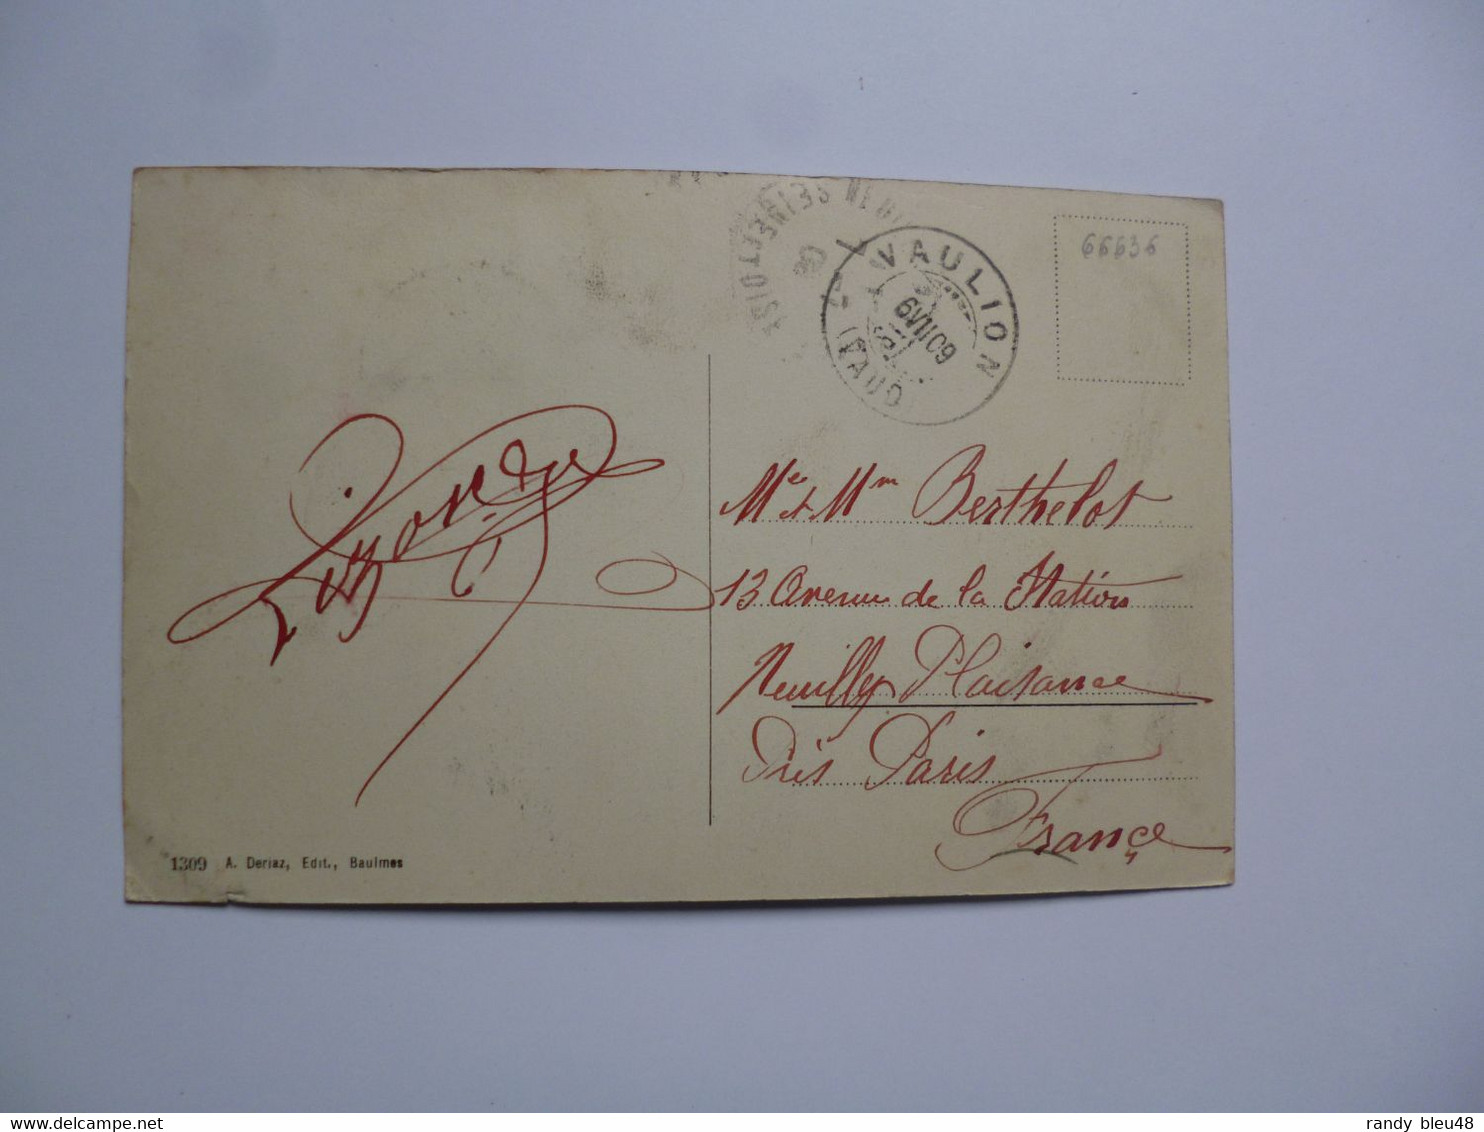 VAULION
6 VII 09
(VAUD)
66636
Me et Mm Berthelot
13 Avenue de la Station
Neuilly Plaisance
Près Paris
France
1309 A. Deriaz, Edit., Baulmes
delcampe.net
randy_bleu48